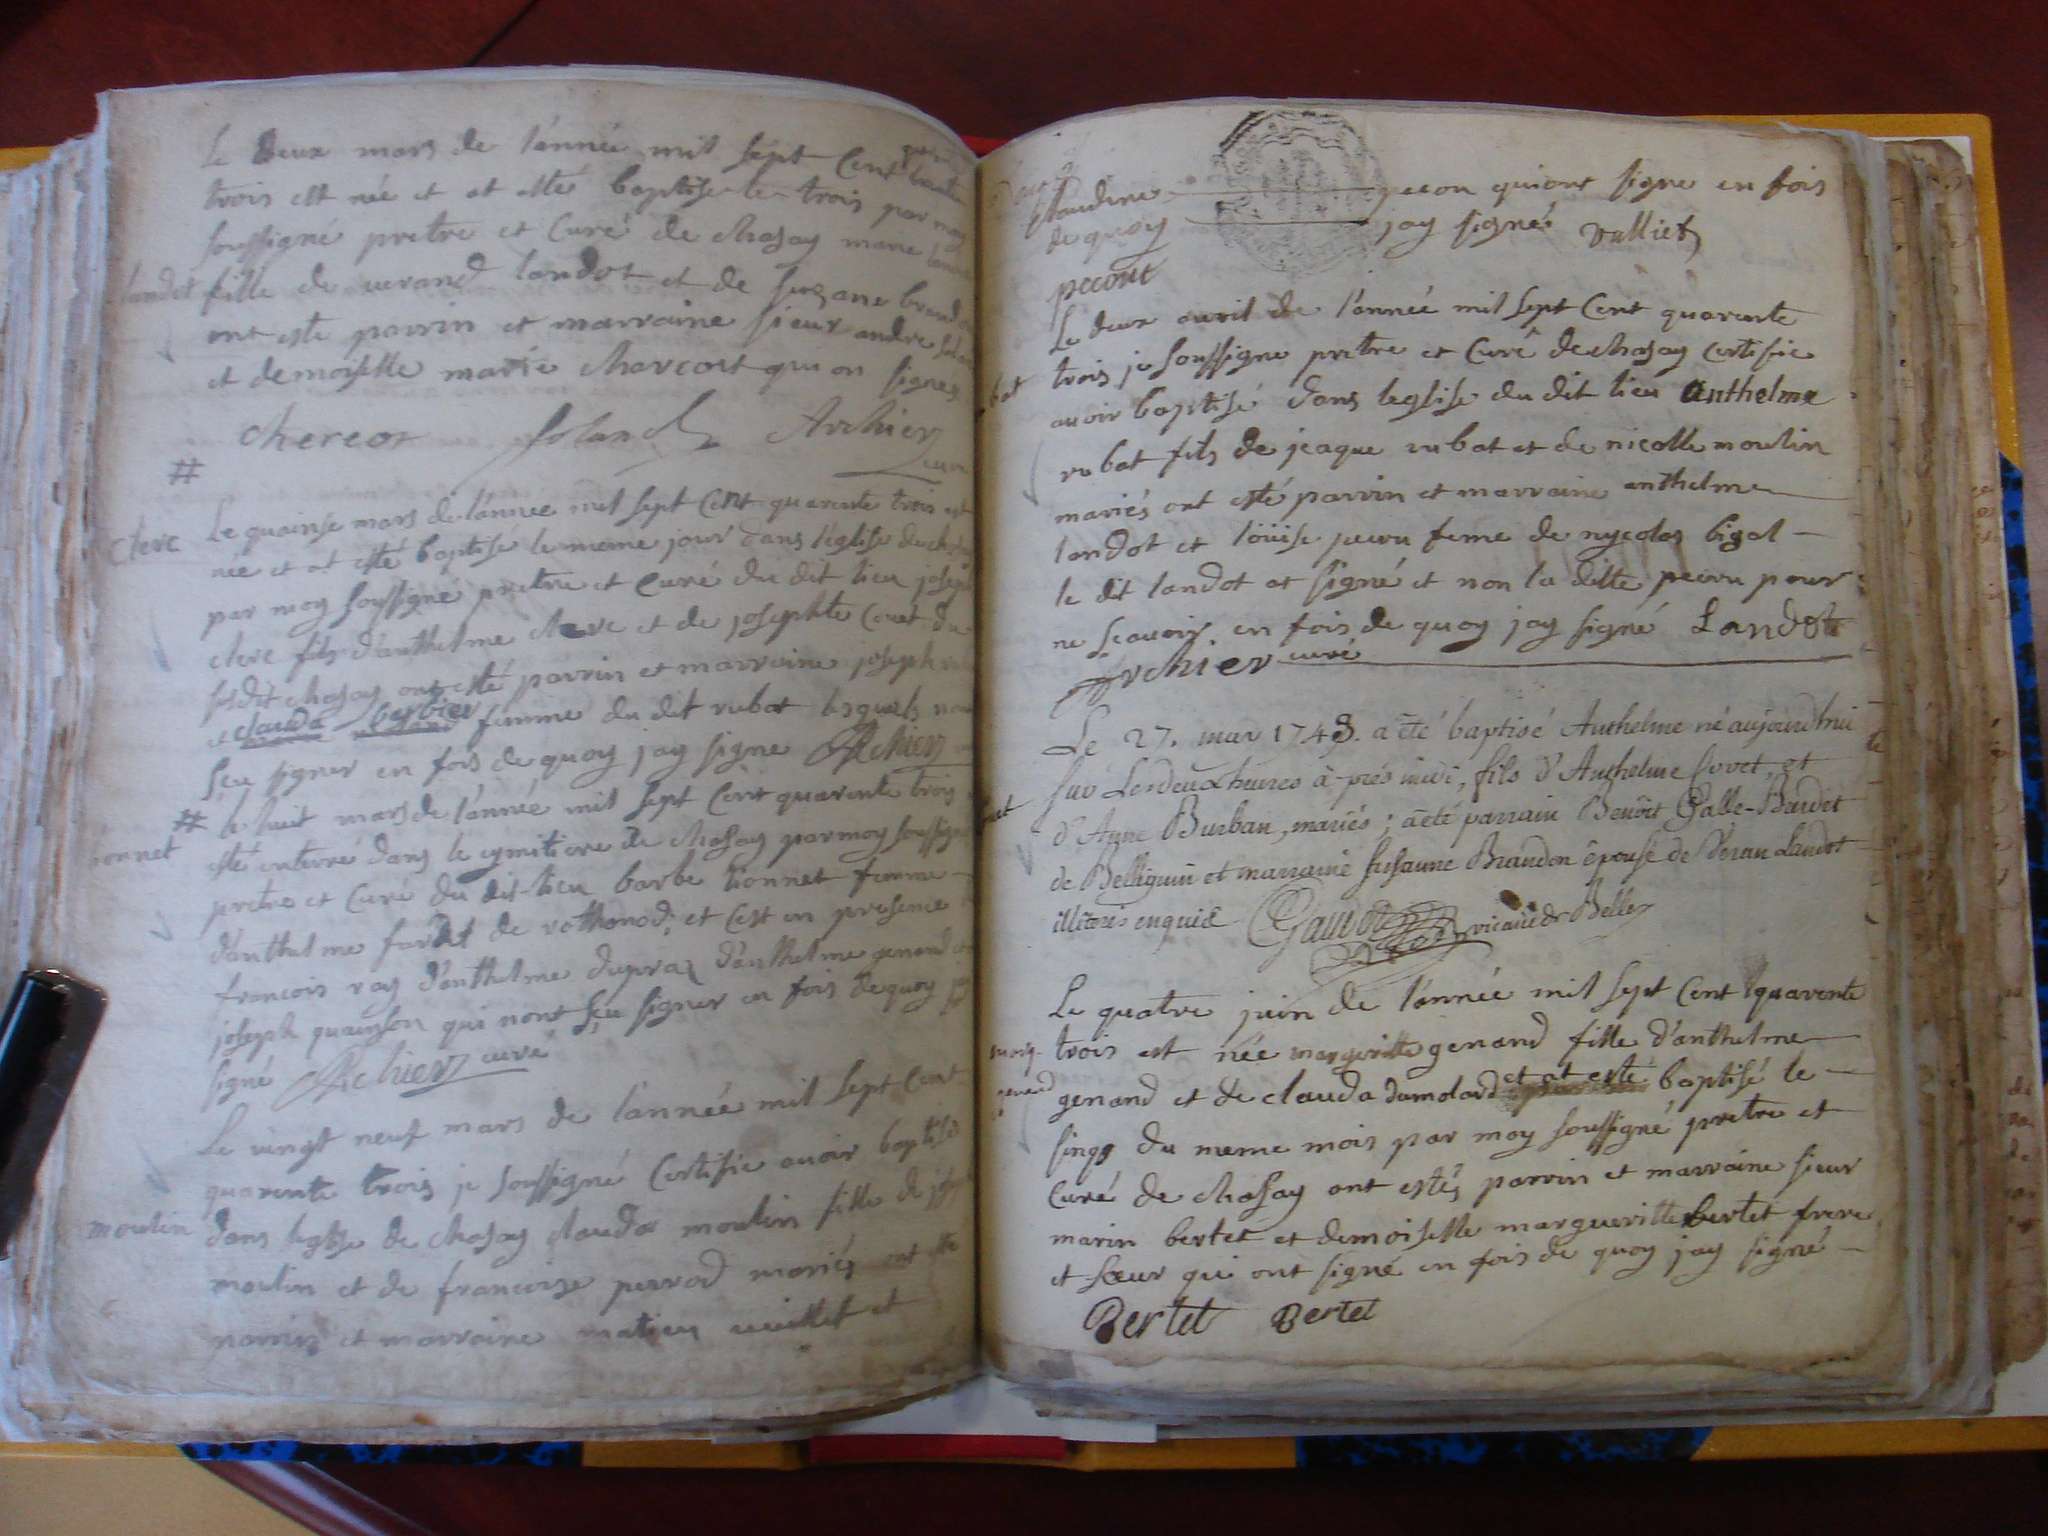 Le deux mars de l'année mil sept Cent quarente
trois est née et at esté baptise le trois par moy
soussigné pretre et Curé de chasay marie
landot fille de verand landot et de susane
ont esté parrin et marraine sieur andre
et demoiselle marie charcot qui on signes
chercot Archier
curé
#
clerc Le quainse mars de l'année mil sept Cent quarente trois est
née et at esté baptisé le meme jour dans l'eglise de
par moy soussigné pretre et Curé du dit lieu joseph
clerc fils d'anthelme clerc et de josephte Couet du
susdit chasay ont esté parrin et marraine joseph
et clauda berbier femme du dit rubat lesquels
sceu signer en fois de quoy jay signe Archier
# le huit mars de l'année mil sept Cent quarente trois
esté enterré dans le cymitiere de chasay par moy soussigné
pretre et Curé du dit lieu barbe tionnet femme
d'anthelme fardet de rothonod, et cest en presence
francois ray d'anthelme dupraz d'anthelme genand
joseph quainson qui nont sçeu signer en fois de quoy
signé Archier curé
Le vingt neuf mars de l'année mil sept Cent
quarente trois je soussigné Certifie avoir baptisé
moulin dans leglise de chasay clauda moulin fille de
moulin et de francoise perrod mariés ont esté
parrin et marraine matieu et
claudine pecon qui ont signe en fois
de quoy jay signé Valliet
pecout
Le deux avril de l'année mil sept Cent quarente
trois je soussigne pretre et Curé de chasay Certifie
avoir baptisé dans leglise du dit lieu anthelme
rubat fils de jeaque rubat et de nicolle moulin
mariés ont esté parrin et marraine anthelme
landot et loüise pecou feme de nycolas bigal
le dit landot at signé et non la ditte pecou pour
ne scavoir en fois de quoy jay signé Landot
Archier curé
Le 27. mar 1743. a été baptisé Anthelme né aujourdhui
sur Les deux heures à prés midi, fils d'Anthelme Covet, et
d'Anne Burban, mariés; a été parrain Benôit Galle-Bardet
de Belliguin et marraine susanne Brandon épouse de Véran Landot
illiteris enquis Gaudet vicaire de Belley
Le quatre juin de l'année mil sept Cent quarente
marg. trois est née margeritte genand fille d'anthelme
genand genand et de clauda dumolard et at esté baptisé le
sinq du meme mois par moy soussigné pretre et
Curé de chasay ont estés parrin et marraine sieur
marin bertet et demoiselle margueritte bertet frere
et sœur qui ont signé en fois de quoy jay signé
Bertet Bertet